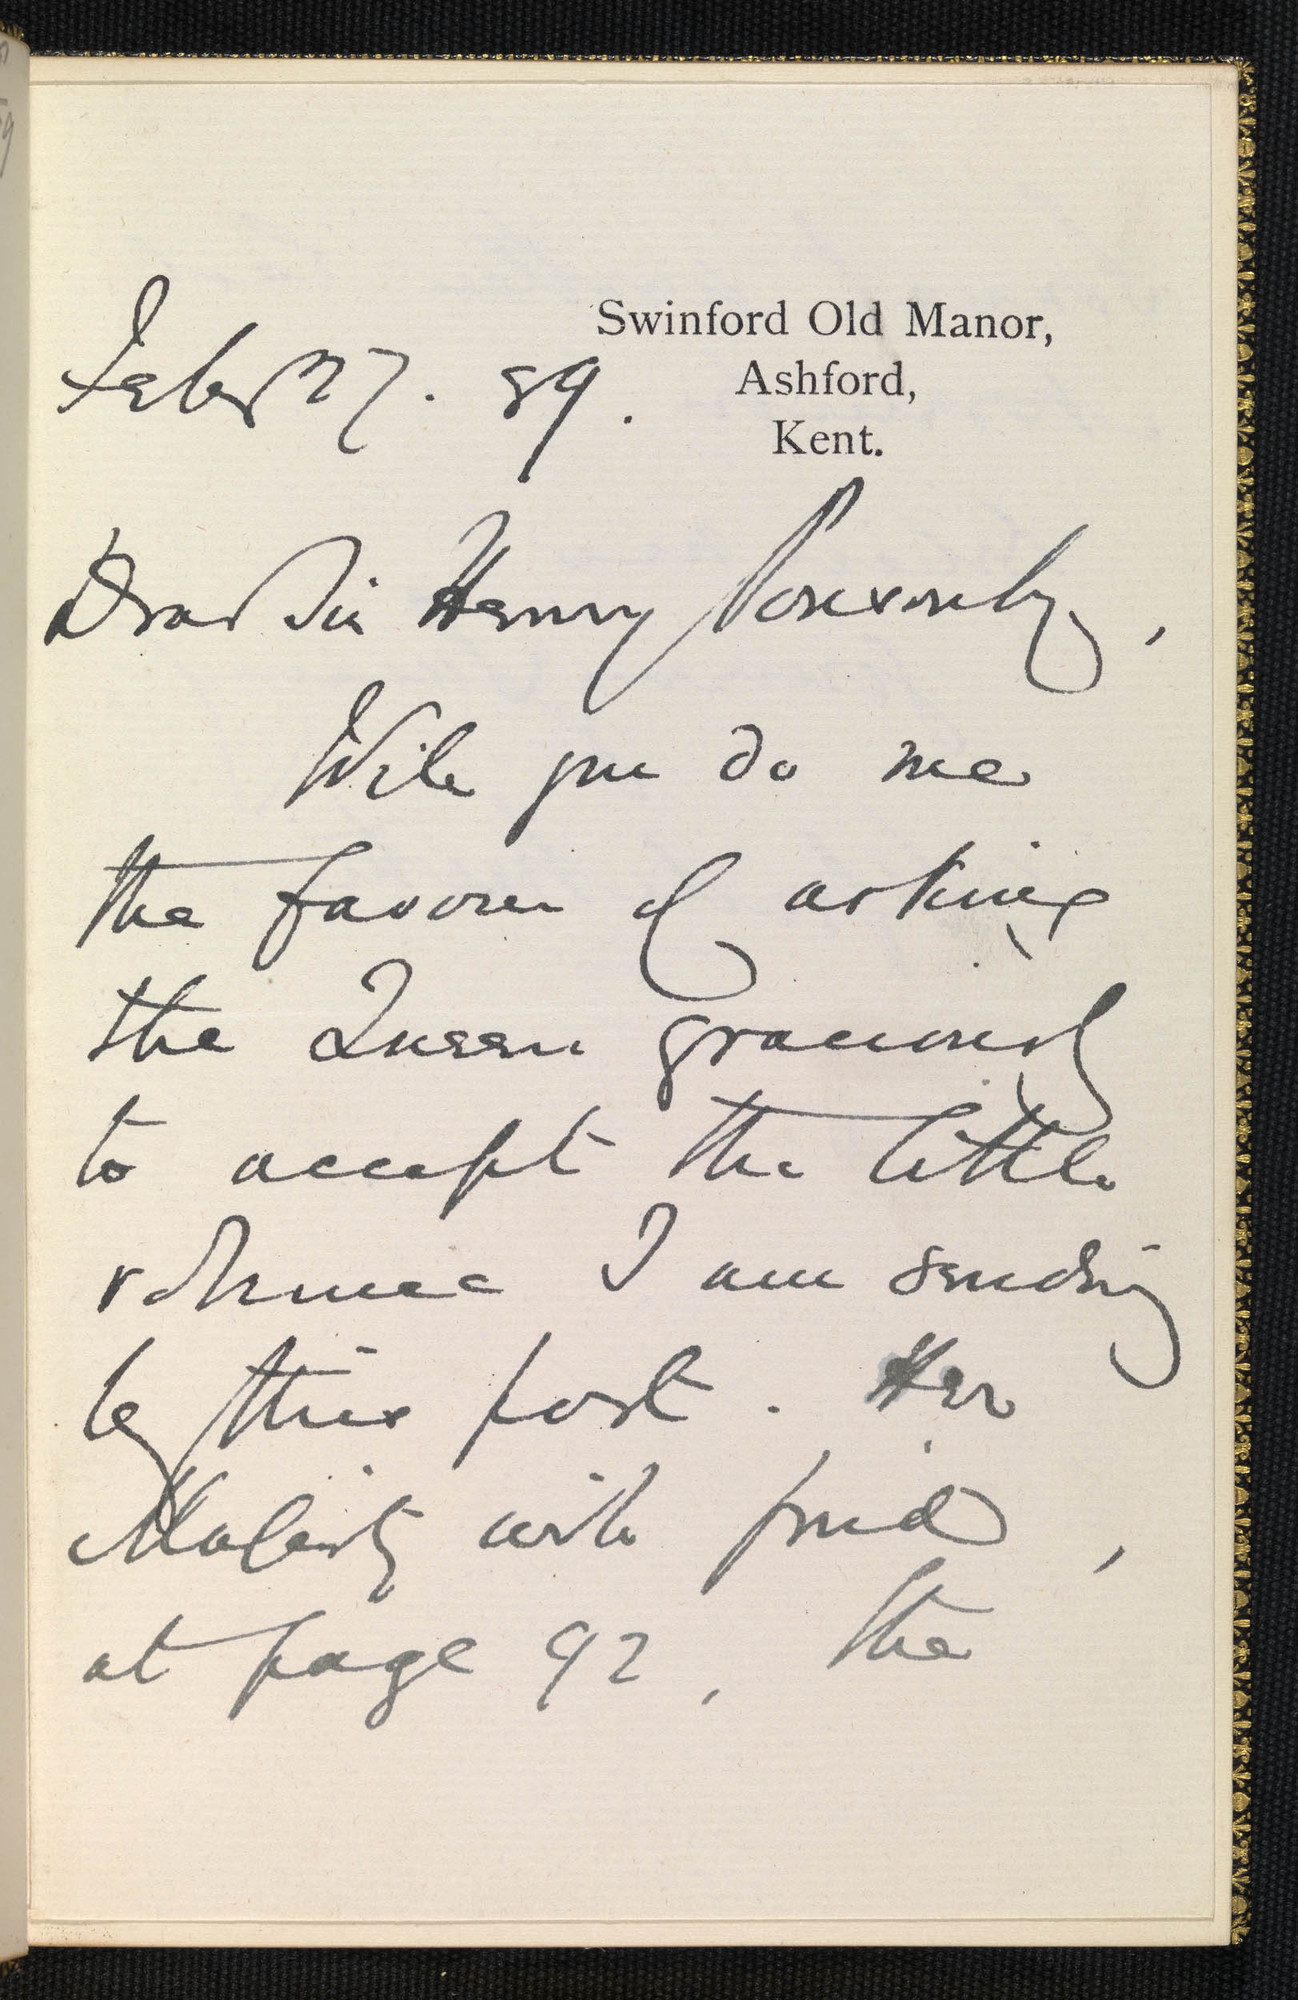 Swinford Old Manor,
Ashford,
Kent.
Feby 27. 89.
Dear Sir Henry Ponsonby,
Will you do me
the favour of asking
the Queen graciously
to accept the little
volume I am sending
by this post. Her
Majesty will find,
at page 92, the